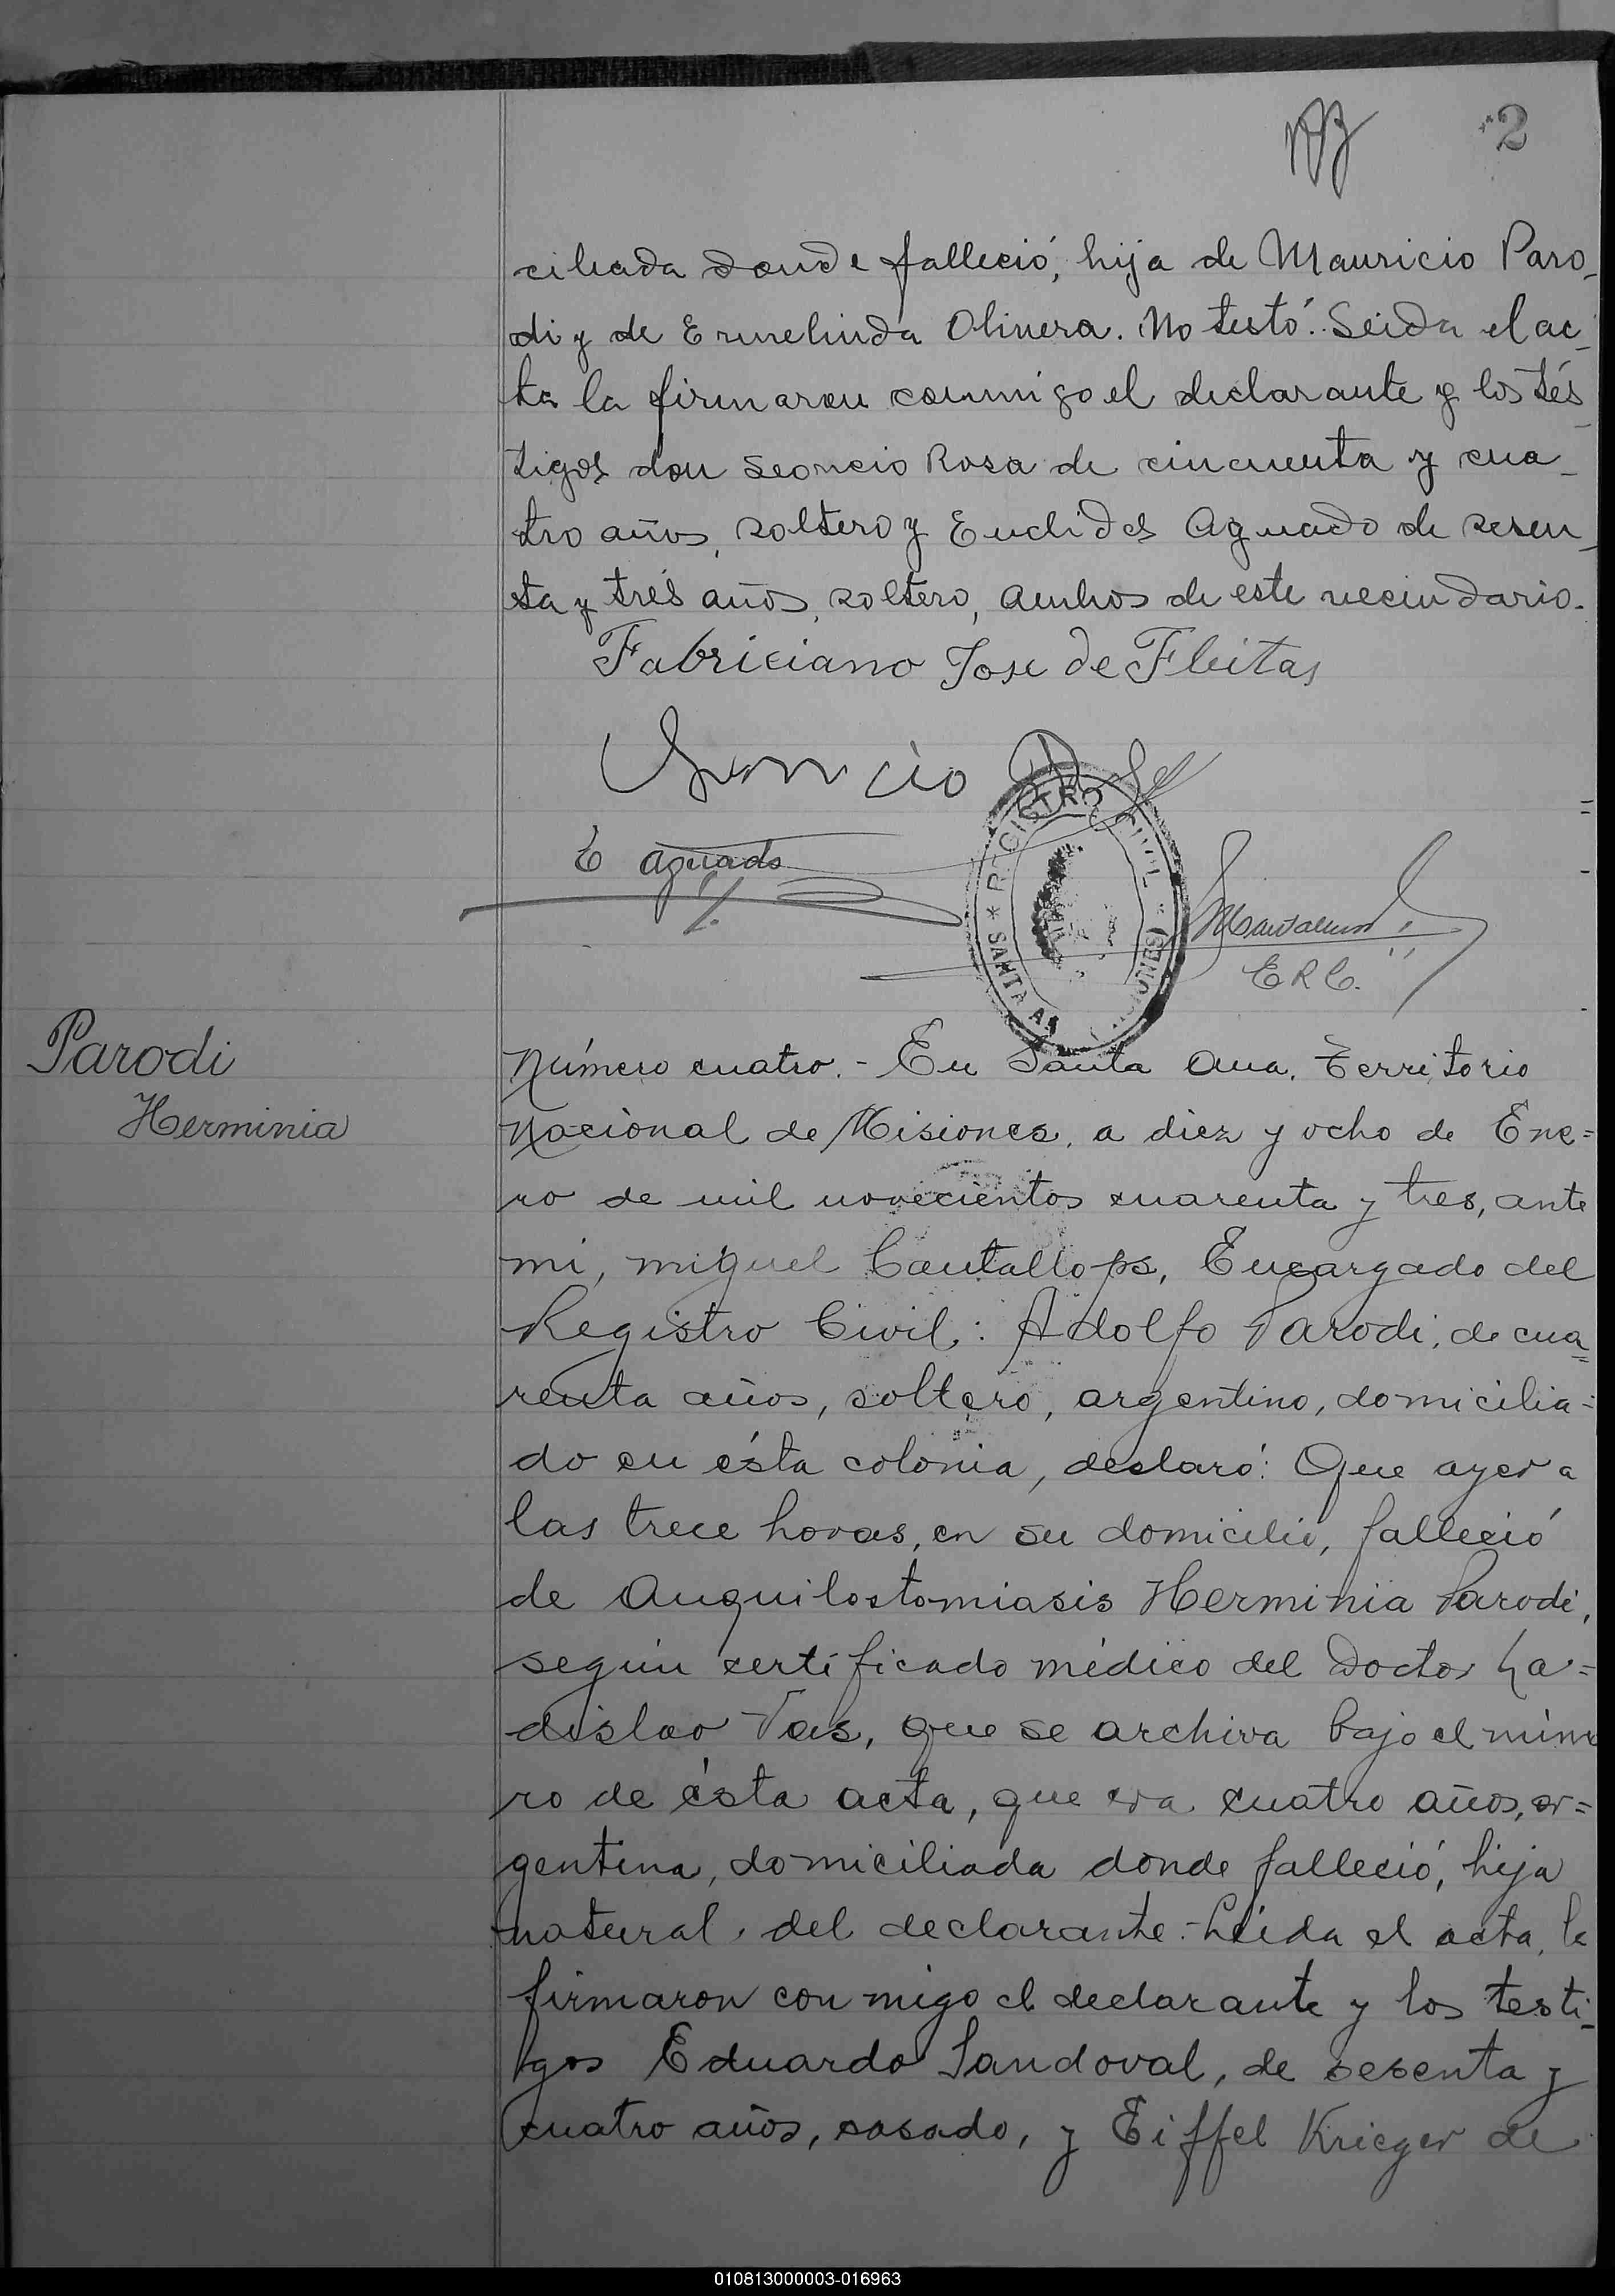 2
ciliada donde falleció, hija de Mauricio Paro-
di y de Ermelinda Olivera. No testó. Leida el ac-
ta la firmaron conmigo el declarante y los tés-
tigos don Leoncio Rosa de cincuenta y cua-
tro años, soltero y Euclides Aguado de sesen-
ta y trés años, soltero, ambos de este vecindario.
Fabriciano Jose de Fleitas
E Aguado
REGISTRO CIVIL
SANTA ANA (MISIONES)
E R C.
Parodi
Herminia
Número cuatro.- En Santa Ana, Territorio
Nacional de Misiones, a diez y ocho de Ene=
ro de mil novecientos cuarenta y tres, ante
mi, Miguel Cantallops, Encargado del
Registro Civil: Adolfo Parodi, de cua=
renta años, soltero, argentino, domicilia=
do en ésta colonia, declaró: Que ayer a
las trece horas, en su domicilio, falleció
de Anquilostomiasis Herminia Parodi,
según certificado médico del Doctor La=
dislao Vas, que se archiva bajo el núme
ro de ésta acta, que era cuatro años, ar=
gentina, domiciliada donde falleció, hija
natural, del declarante.-Leida el acta, la
firmaron con migo el declarante y los testi-
gos Eduardo Sandoval, de sesenta y
cuatro años, casado, y Eiffel Krieger de
010813000003-016963